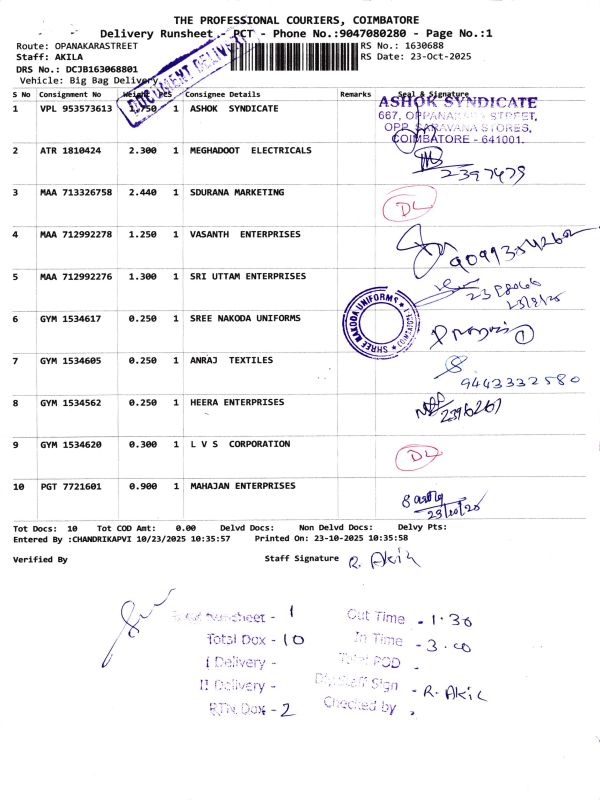 THE PROFESSIONAL COURIERS, COIMBATORE
Delivery Runsheet - PCT - Phone No.:9047080280 - Page No.:1
Route: OPANAKARASTREET RS No.: 1630688
Staff: AKILA RS Date: 23-Oct-2025
DRS No.: DCJB163068801
Vehicle: Big Bag Delivery
DOCUMENT DELIVERY
S No Consignment No Weight PCS Consignee Details Remarks Seal & Signature
1 VPL 953573613 1.750 1 ASHOK SYNDICATE
ASHOK SYNDICATE
667, OPPANAKARA STREET,
OPP. SARAVANA STORES,
COIMBATORE - 641001.
2 ATR 1810424 2.300 1 MEGHADOOT ELECTRICALS
2397479
3 MAA 713326758 2.440 1 SDURANA MARKETING
DL
4 MAA 712992278 1.250 1 VASANTH ENTERPRISES
5 MAA 712992276 1.300 1 SRI UTTAM ENTERPRISES
6 GYM 1534617 0.250 1 SREE NAKODA UNIFORMS
SHREE NAKODA UNIFORMS
7 GYM 1534605 0.250 1 ANRAJ TEXTILES
9443332580
8 GYM 1534562 0.250 1 HEERA ENTERPRISES
2396267
9 GYM 1534620 0.300 1 L V S CORPORATION
DL
10 PGT 7721601 0.900 1 MAHAJAN ENTERPRISES
23/10/25
Tot Docs: 10 Tot COD Amt: 0.00 Delvd Docs: Non Delvd Docs: Delvy Pts:
Entered By :CHANDRIKAPVI 10/23/2025 10:35:57 Printed On: 23-10-2025 10:35:58
Verified By Staff Signature R. Akil
Runsheet - 1 Out Time - 1.30
Total Dox - 10 In Time - 3.00
I Delivery - Total POD
II Delivery - Staff Sign - R. Akil
RTN Dox - 2 Checked by